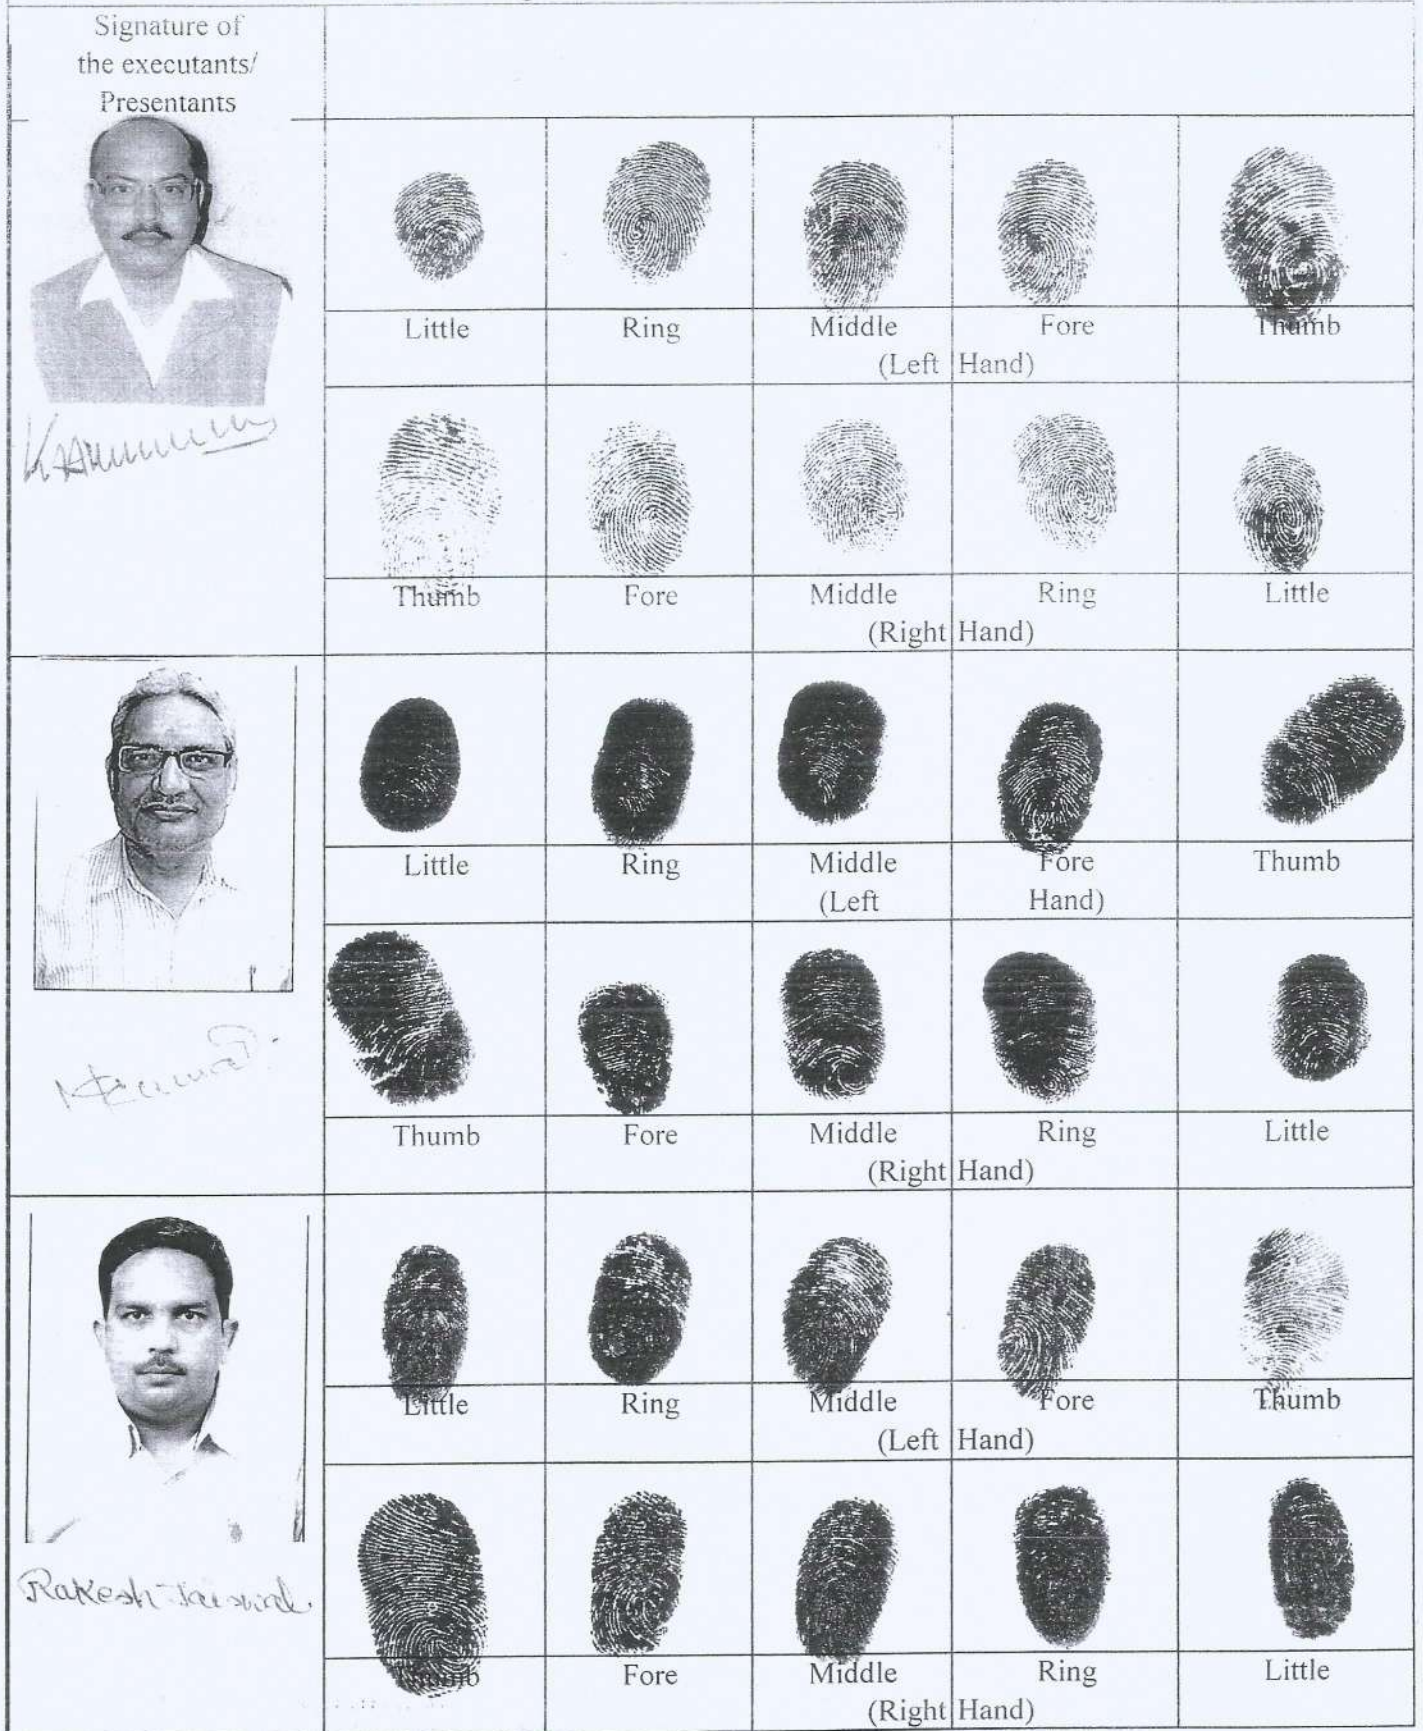 Signature of
the executants/
Presentants
Little Ring Middle Fore Thumb
(Left Hand)
Thumb Fore Middle Ring Little
(Right Hand)
Little Ring Middle Fore Thumb
(Left Hand)
Thumb Fore Middle Ring Little
(Right Hand)
Little Ring Middle Fore Thumb
(Left Hand)
Rakesh Jaiswal
Thumb Fore Middle Ring Little
(Right Hand)